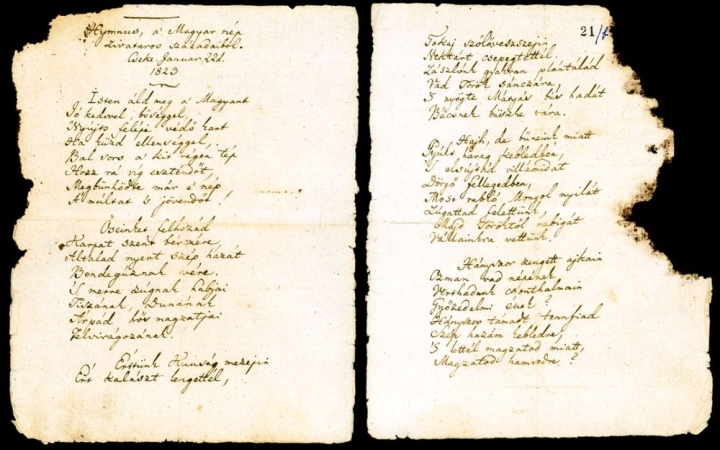 Hymnus, a' Magyar nép
zivataros századaiból.
Cseke. Januar. 22d.
1823
Isten áld meg a Magyart
Jó kedvvel, bőséggel,
Nyújts feléje védő kart
Ha küzd ellenséggel,
Bal sors a' kit régen tép
Hozz rá víg esztendőt,
Megbűnhödte már e' nép
A' múltat 's jövendőt!
Őseinket felhozád
Kárpát szent bérczére,
Általad nyert szép hazát
Bendegúznak vére.
'S merre zúgnak habjai
Tiszának, Dunának,
Árpád hős magzatjai
Felvirágozának.
Értünk Kunság mezejin
Ért kalászt lengettél,
21/
Tokaj szőlővesszejin
Nektárt csepegtettél.
Zászlónk gyakran plántálád
Vad Török sánczára,
'S nyögte Mátyás bús hadát
Bécsnek büszke vára.
Hajh, de bűneink miatt
Gyúlt harag kebledben,
'S elsújtád villámidat
Dörgő fellegedben,
Most rabló Mongol nyilát
Zúgattad felettünk,
Majd Töröktől rabigát
Vállainkra vettünk.
Hányszor zengett ajkain
Ozman vad népének
Vert hadunk csonthalmain
Győzedelmi ének?
Hányszor támadt tennfiad
Szép hazám kebledre,
'S lettél magzatod miatt,
Magzatod hamvedre?